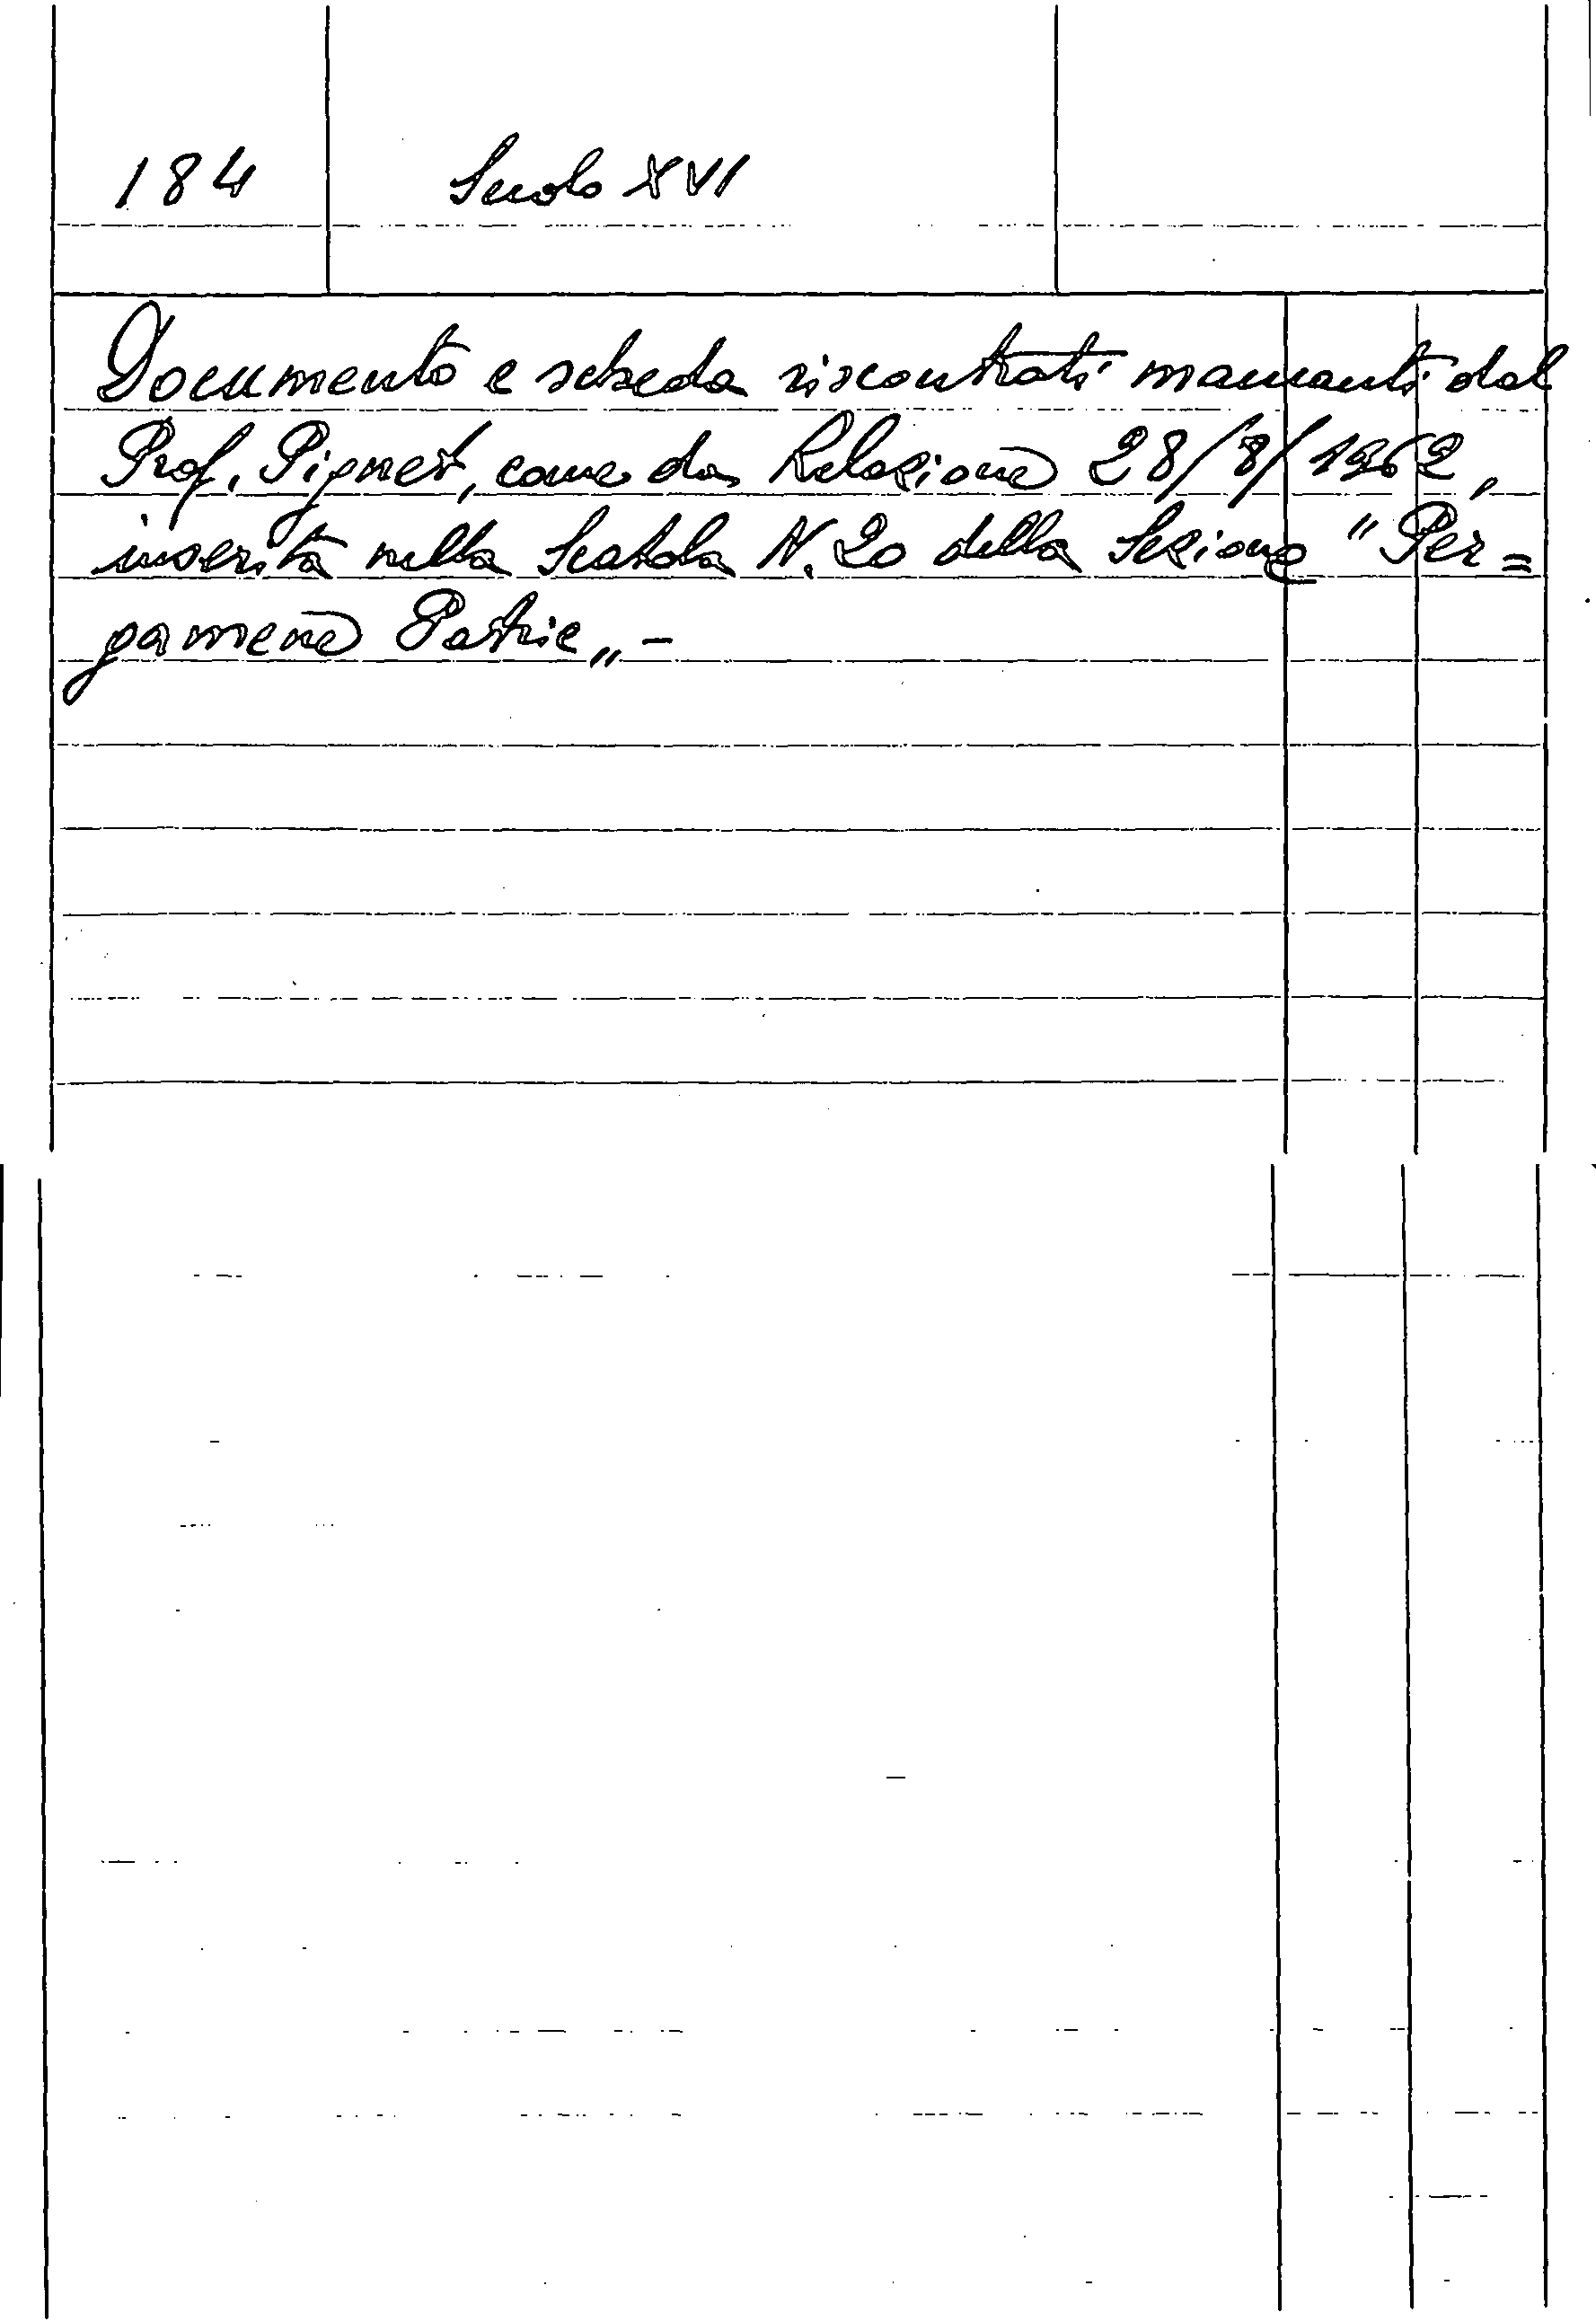 184 Secolo XVI
Documento e scheda riscontrati mancanti dal
Prof. Pignet, come da Relazione 28/8/1962,
inserita nella Scatola N. 20 della Sezione "Per=
gamene Patrie„ -